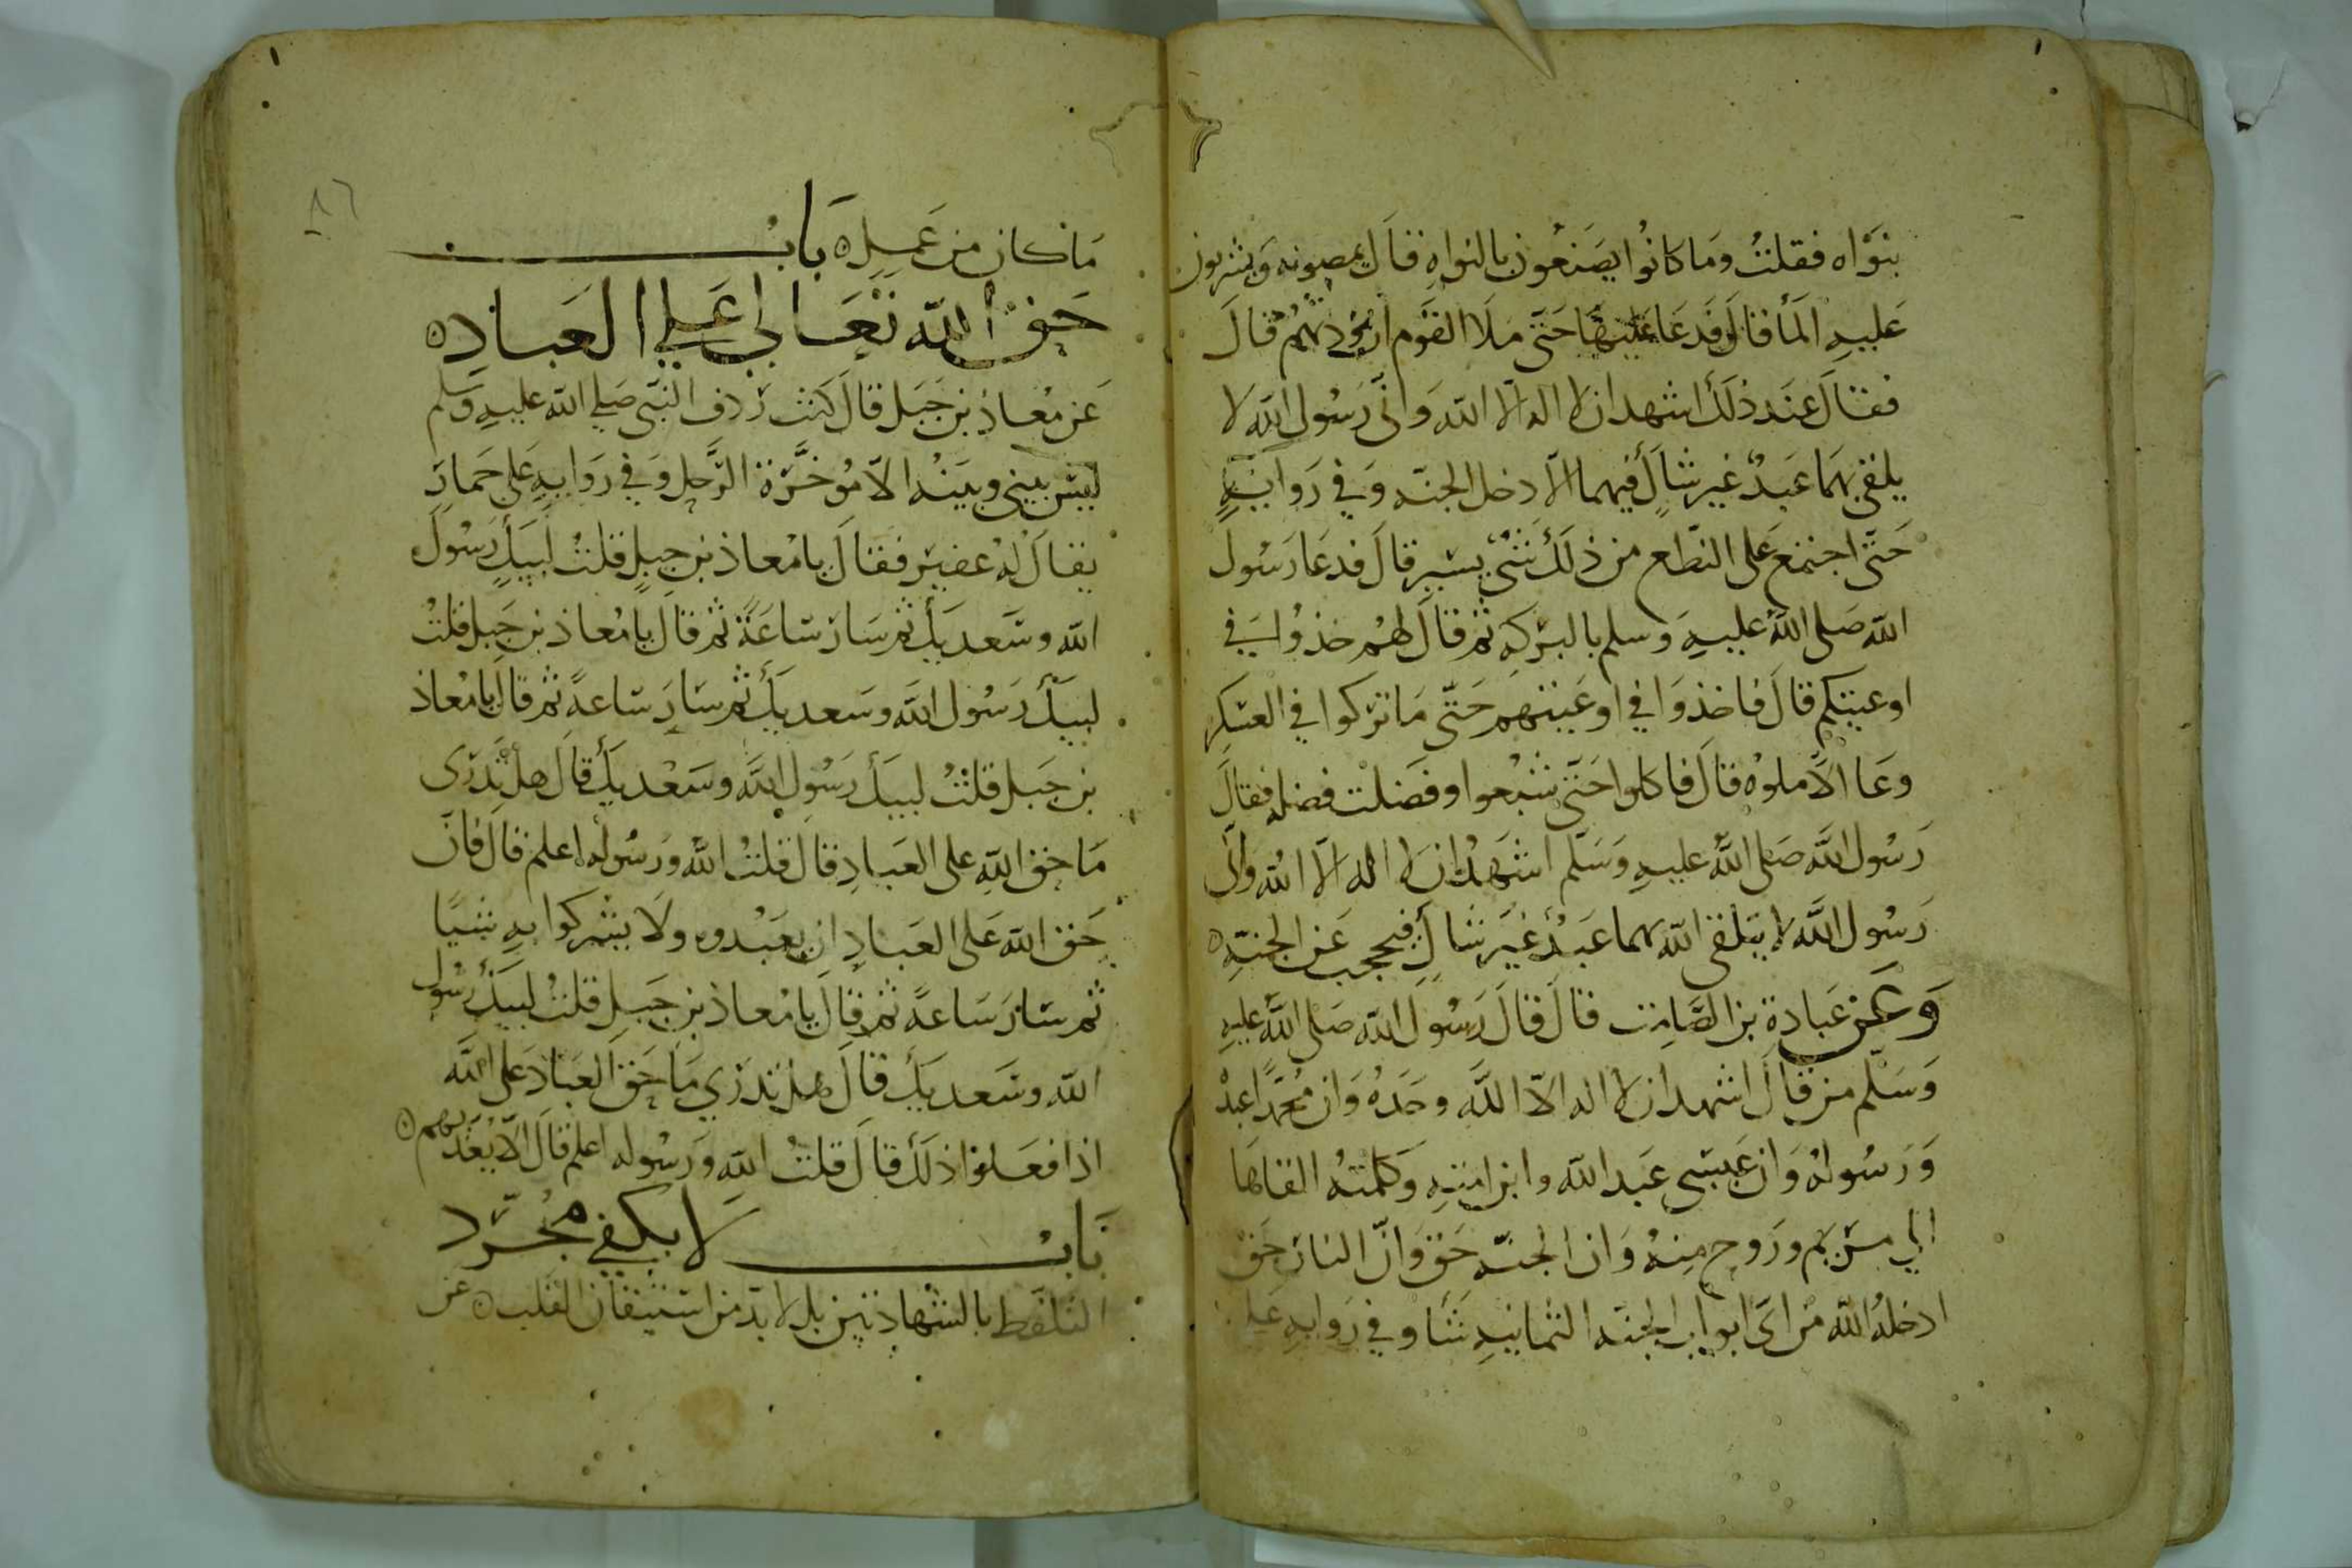 بنواه فقلت وما كانوا يصنعون بالنواه قال يمصونه ويشربون
عليه الما قال فدعا عليها حتى ملا القوم ازودتهم قال
فقال عند ذلك اشهد ان لا اله الا الله واني رسول الله لا
يلقى بهما عبد غير شاك فيهما الا دخل الجنه وفي روايه
حتى اجتمع على النطع من ذلك شي يسير قال فدعا رسول
الله صلى الله عليه وسلم بالبركه ثم قال لهم خذوا في
اوعيتكم قال فاخذوا في اوعيتهم حتى ما تركوا في العسكر
وعا الا ملوه قال فاكلوا حتى شبعوا وفضلت فضله فقال
رسول الله صلى الله عليه وسلم اشهد ان لا اله الا الله واني
رسول الله لا يلقى الله بهما عبد غير شاك فيحجب عن الجنه ه
وعن عبادة بن الصامت قال قال رسول الله صلى الله عليه
وسلم من قال اشهد ان لا اله الا الله وحده وان محمدا عبده
ورسوله وان عيسى عبد الله وابن امته وكلمته القاها
الي مريم وروح منه وان الجنه حق وان النار حق
ادخله الله من اى ابواب الجنه الثمانيه شا وفي روايه على
٨٦
ما كان من عمله ه باب
حق الله تعالى على العباد ه
عن معاذ بن جبل قال كنت ردف النبي صلى الله عليه وسلم
ليس بيني وبينه الا مؤخرة الرحل وفي روايه على حمار
يقال له عفير فقال يا معاذ بن جبل قلت لبيك رسول
الله وسعديك ثم سار ساعة ثم قال يا معاذ بن جبل قلت
لبيك رسول الله وسعديك ثم سار ساعة ثم قال يا معاذ
بن جبل قلت لبيك رسول الله وسعديك قال هل تدرى
ما حق الله على العباد قال قلت الله ورسوله اعلم قال فان
حق الله على العباد ان يعبدوه ولا يشركوا به شيا
ثم سار ساعة ثم قال يا معاذ بن جبل قلت لبيك رسول
الله وسعديك قال هل تدري ما حق العباد على الله
اذا فعلوا ذلك قال قلت الله ورسوله اعلم قال الا يعذبهم ه
باب لا يكفي مجرد
التلفظ بالشهادتين بل لا بد من استيقان القلب ه عن